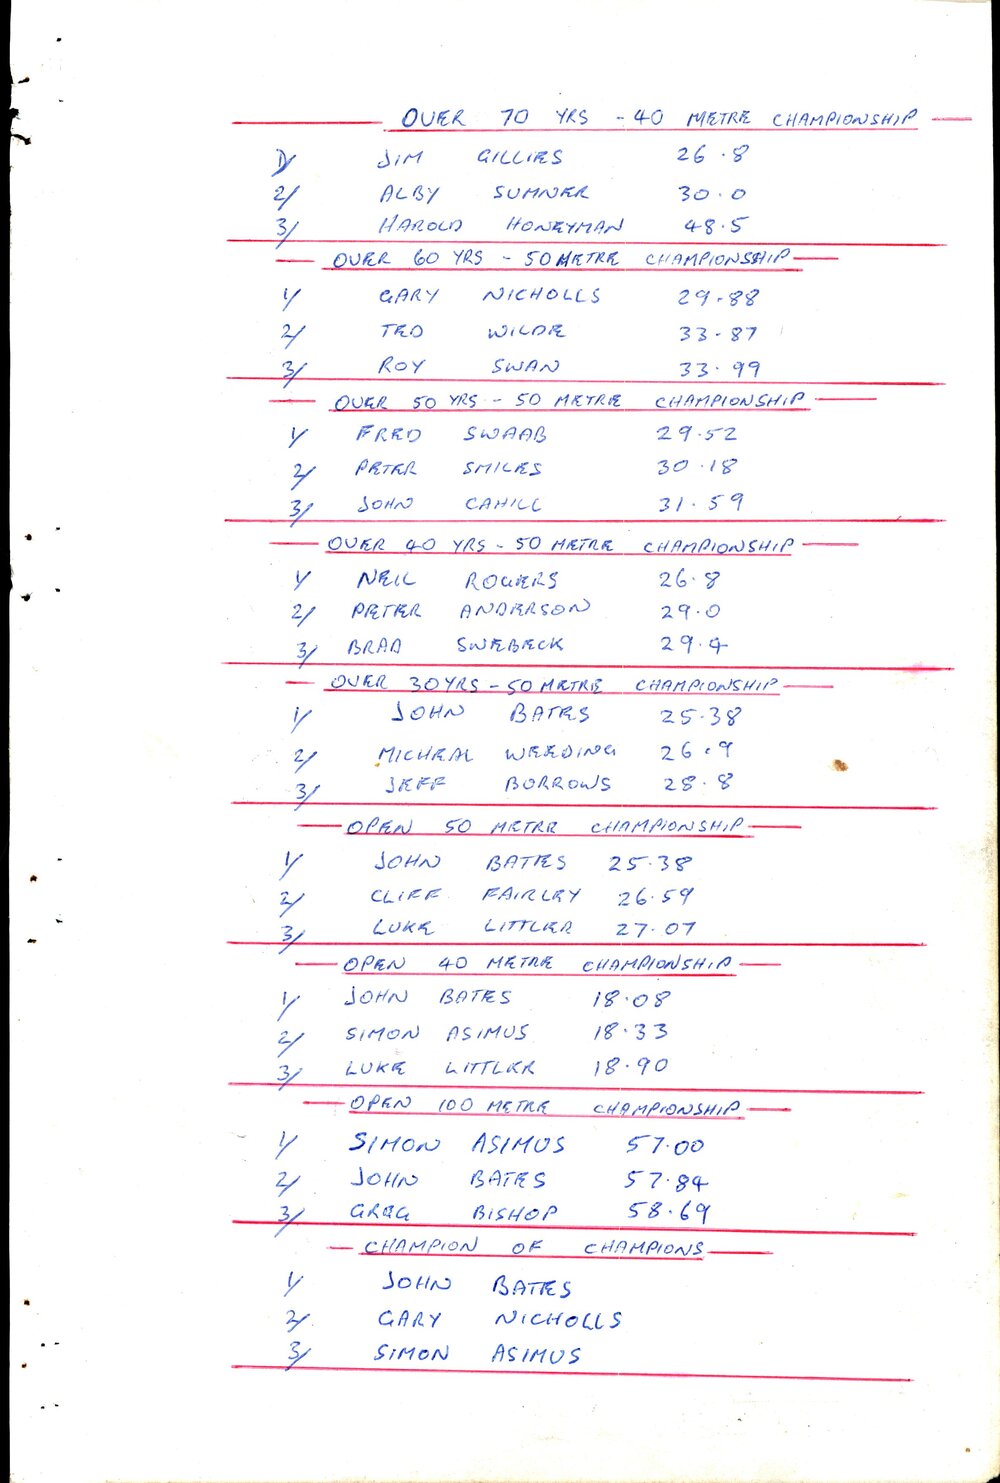 OVER 70 YRS - 40 METRE CHAMPIONSHIP
1/ JIM GILLIES 26.8
2/ ALBY SUMNER 30.0
3/ HAROLD HONEYMAN 48.5
OVER 60 YRS - 50 METRE CHAMPIONSHIP
1/ GARY NICHOLLS 29.88
2/ TED WILDE 33.87
3/ ROY SWAN 33.99
OVER 50 YRS - 50 METRE CHAMPIONSHIP
1/ FRED SWAAB 29.52
2/ PETER SMILES 30.18
3/ JOHN CAHILL 31.59
OVER 40 YRS - 50 METRE CHAMPIONSHIP
1/ NEIL ROGERS 26.8
2/ PETER ANDERSON 29.0
3/ BRAD SWEBECK 29.4
OVER 30 YRS - 50 METRE CHAMPIONSHIP
1/ JOHN BATES 25.38
2/ MICHEAL WEEDING 26.9
3/ JEFF BORROWS 28.8
OPEN 50 METRE CHAMPIONSHIP
1/ JOHN BATES 25.38
2/ CLIFF FAIRLEY 26.59
3/ LUKE LITTLER 27.07
OPEN 40 METRE CHAMPIONSHIP
1/ JOHN BATES 18.08
2/ SIMON ASIMUS 18.33
3/ LUKE LITTLER 18.90
OPEN 100 METRE CHAMPIONSHIP
1/ SIMON ASIMUS 57.00
2/ JOHN BATES 57.84
3/ GREG BISHOP 58.69
CHAMPION OF CHAMPIONS
1/ JOHN BATES
2/ GARY NICHOLLS
3/ SIMON ASIMUS